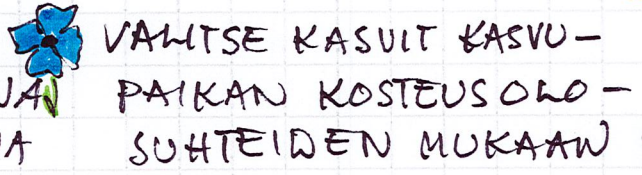 VALITSE KASVIT KASVU-
JA PAIKAN KOSTEUSOLO-
A SUHTEIDEN MUKAAN